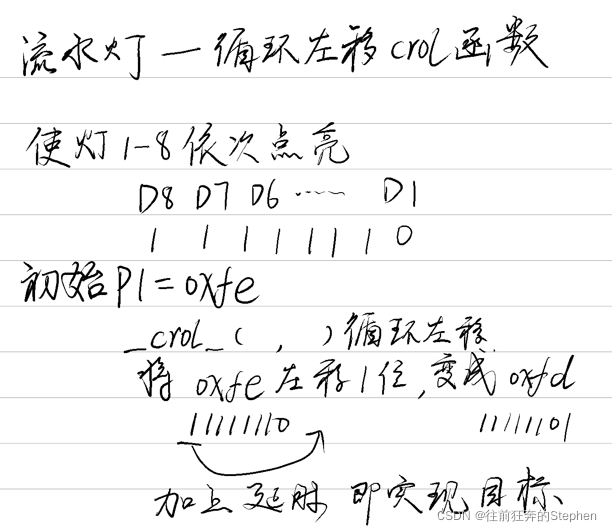 流水灯一循环左移crol函数
使灯1-8依次点亮
D8 D7 D6 …… D1
1 1 1 1 1 1 1 0
初始P1=0xfe
_crol_( , )循环左移
将 0xfe左移1位,变成0xfd
11111110 11111101
加上延时 即实现目标
CSDN @往前狂奔的Stephen